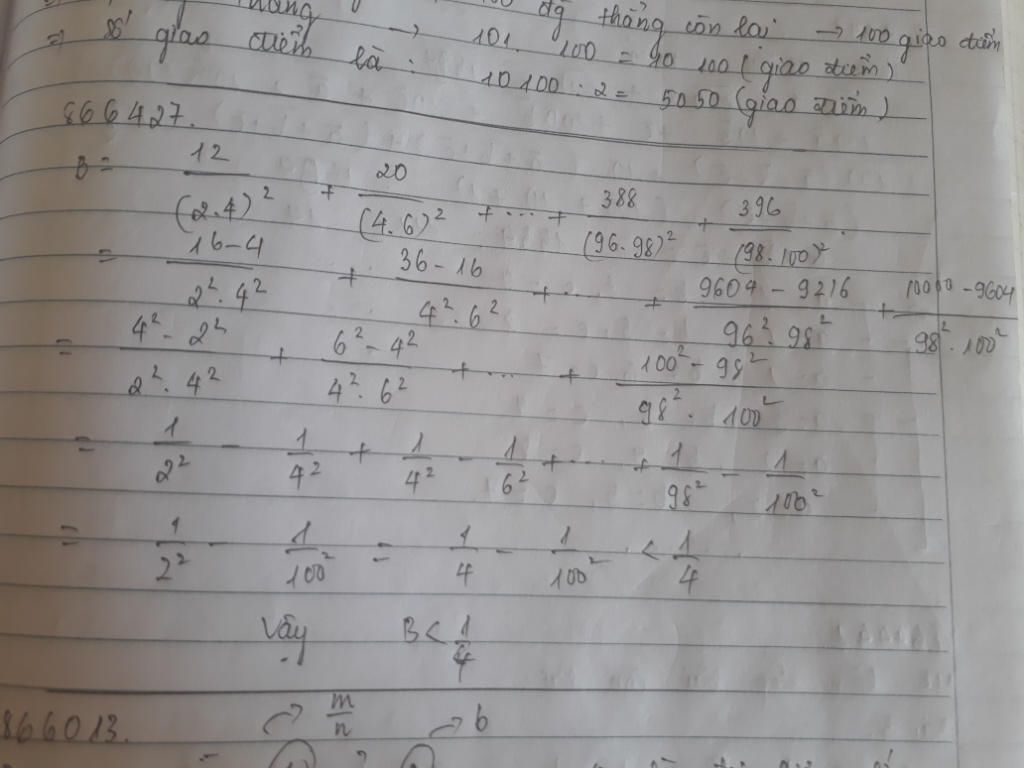 thẳng 100 đg thẳng còn lại → 100 giao điểm
→ 101. 100 = 10 100 (giao điểm)
⇒ số giao điểm là : 10100 : 2 = 5050 (giao điểm)
866427.
B = 12/(2.4)² + 20/(4.6)² + ... + 388/(96.98)² + 396/(98.100)².
= 16-4/2².4² + 36-16/4².6² + ... + 9604-9216/96².98² + 10000-9604/98².100²
= 4²-2²/2².4² + 6²-4²/4².6² + ... + 100²-98²/98².100²
= 1/2² - 1/4² + 1/4² - 1/6² + ... + 1/98² - 1/100²
= 1/2² - 1/100² = 1/4 - 1/100² < 1/4
Vậy B < 1/4
866013. → m/n → b